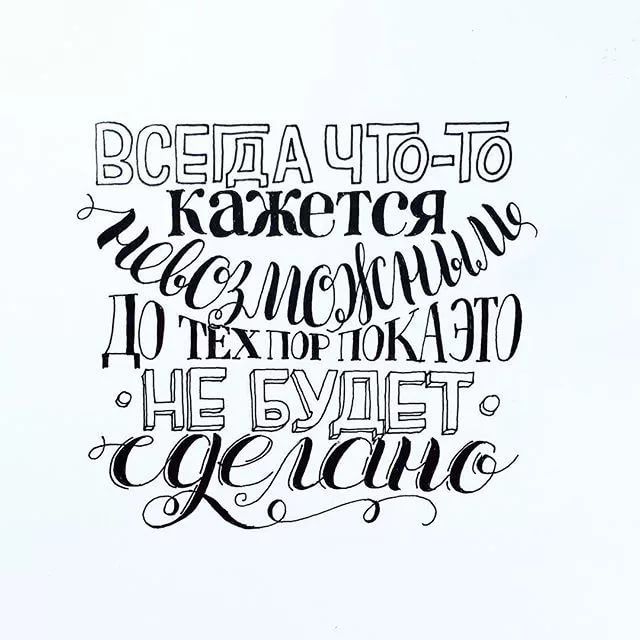 ВСЕГДА ЧТО-ТО
кажется
невозможным
ДО ТЕХ ПОР ПОКА ЭТО
НЕ БУДЕТ
сделано